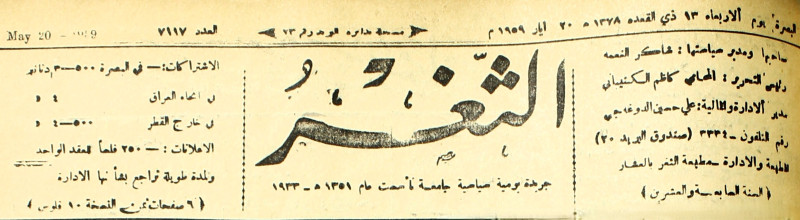 البصرة يوم الاربعاء ١٣ ذي القعده ١٣٧٨ ه ٢٠ ايار ١٩٥٩ م
مسجلة بدائرة البريد برقم ٧٣
العدد ٧١١٧
May 20 - 1959
صاحبها ومدير سياستها : شاكر النعمه
رئيس التحرير : المحامي كاظم
مدير الادارة والمالية : علي حسين
رقم التلفون - ٣٣٣٤ (صندوق البريد ٢٠)
المطبعة والادارة - مطبعة الثغر بالعشار
( السنة السابعة والعشرين )
الثّغر
جريدة يومية سياسية جامعة تأسست عام ١٣٥١ ه - ١٩٣٣
الاشتراكات : — في البصرة ٥٠٠—٣ دنانير
في انحاء العراق ٤ »
في خارج القطر ٥٠٠—٤ »
الاعلانات : — ٢٥٠ فلساً للعقد الواحد
ولمدة طويلة تراجع بشأنها الادارة
( ٦ صفحات ثمن النسخة ١٠ فلوس )